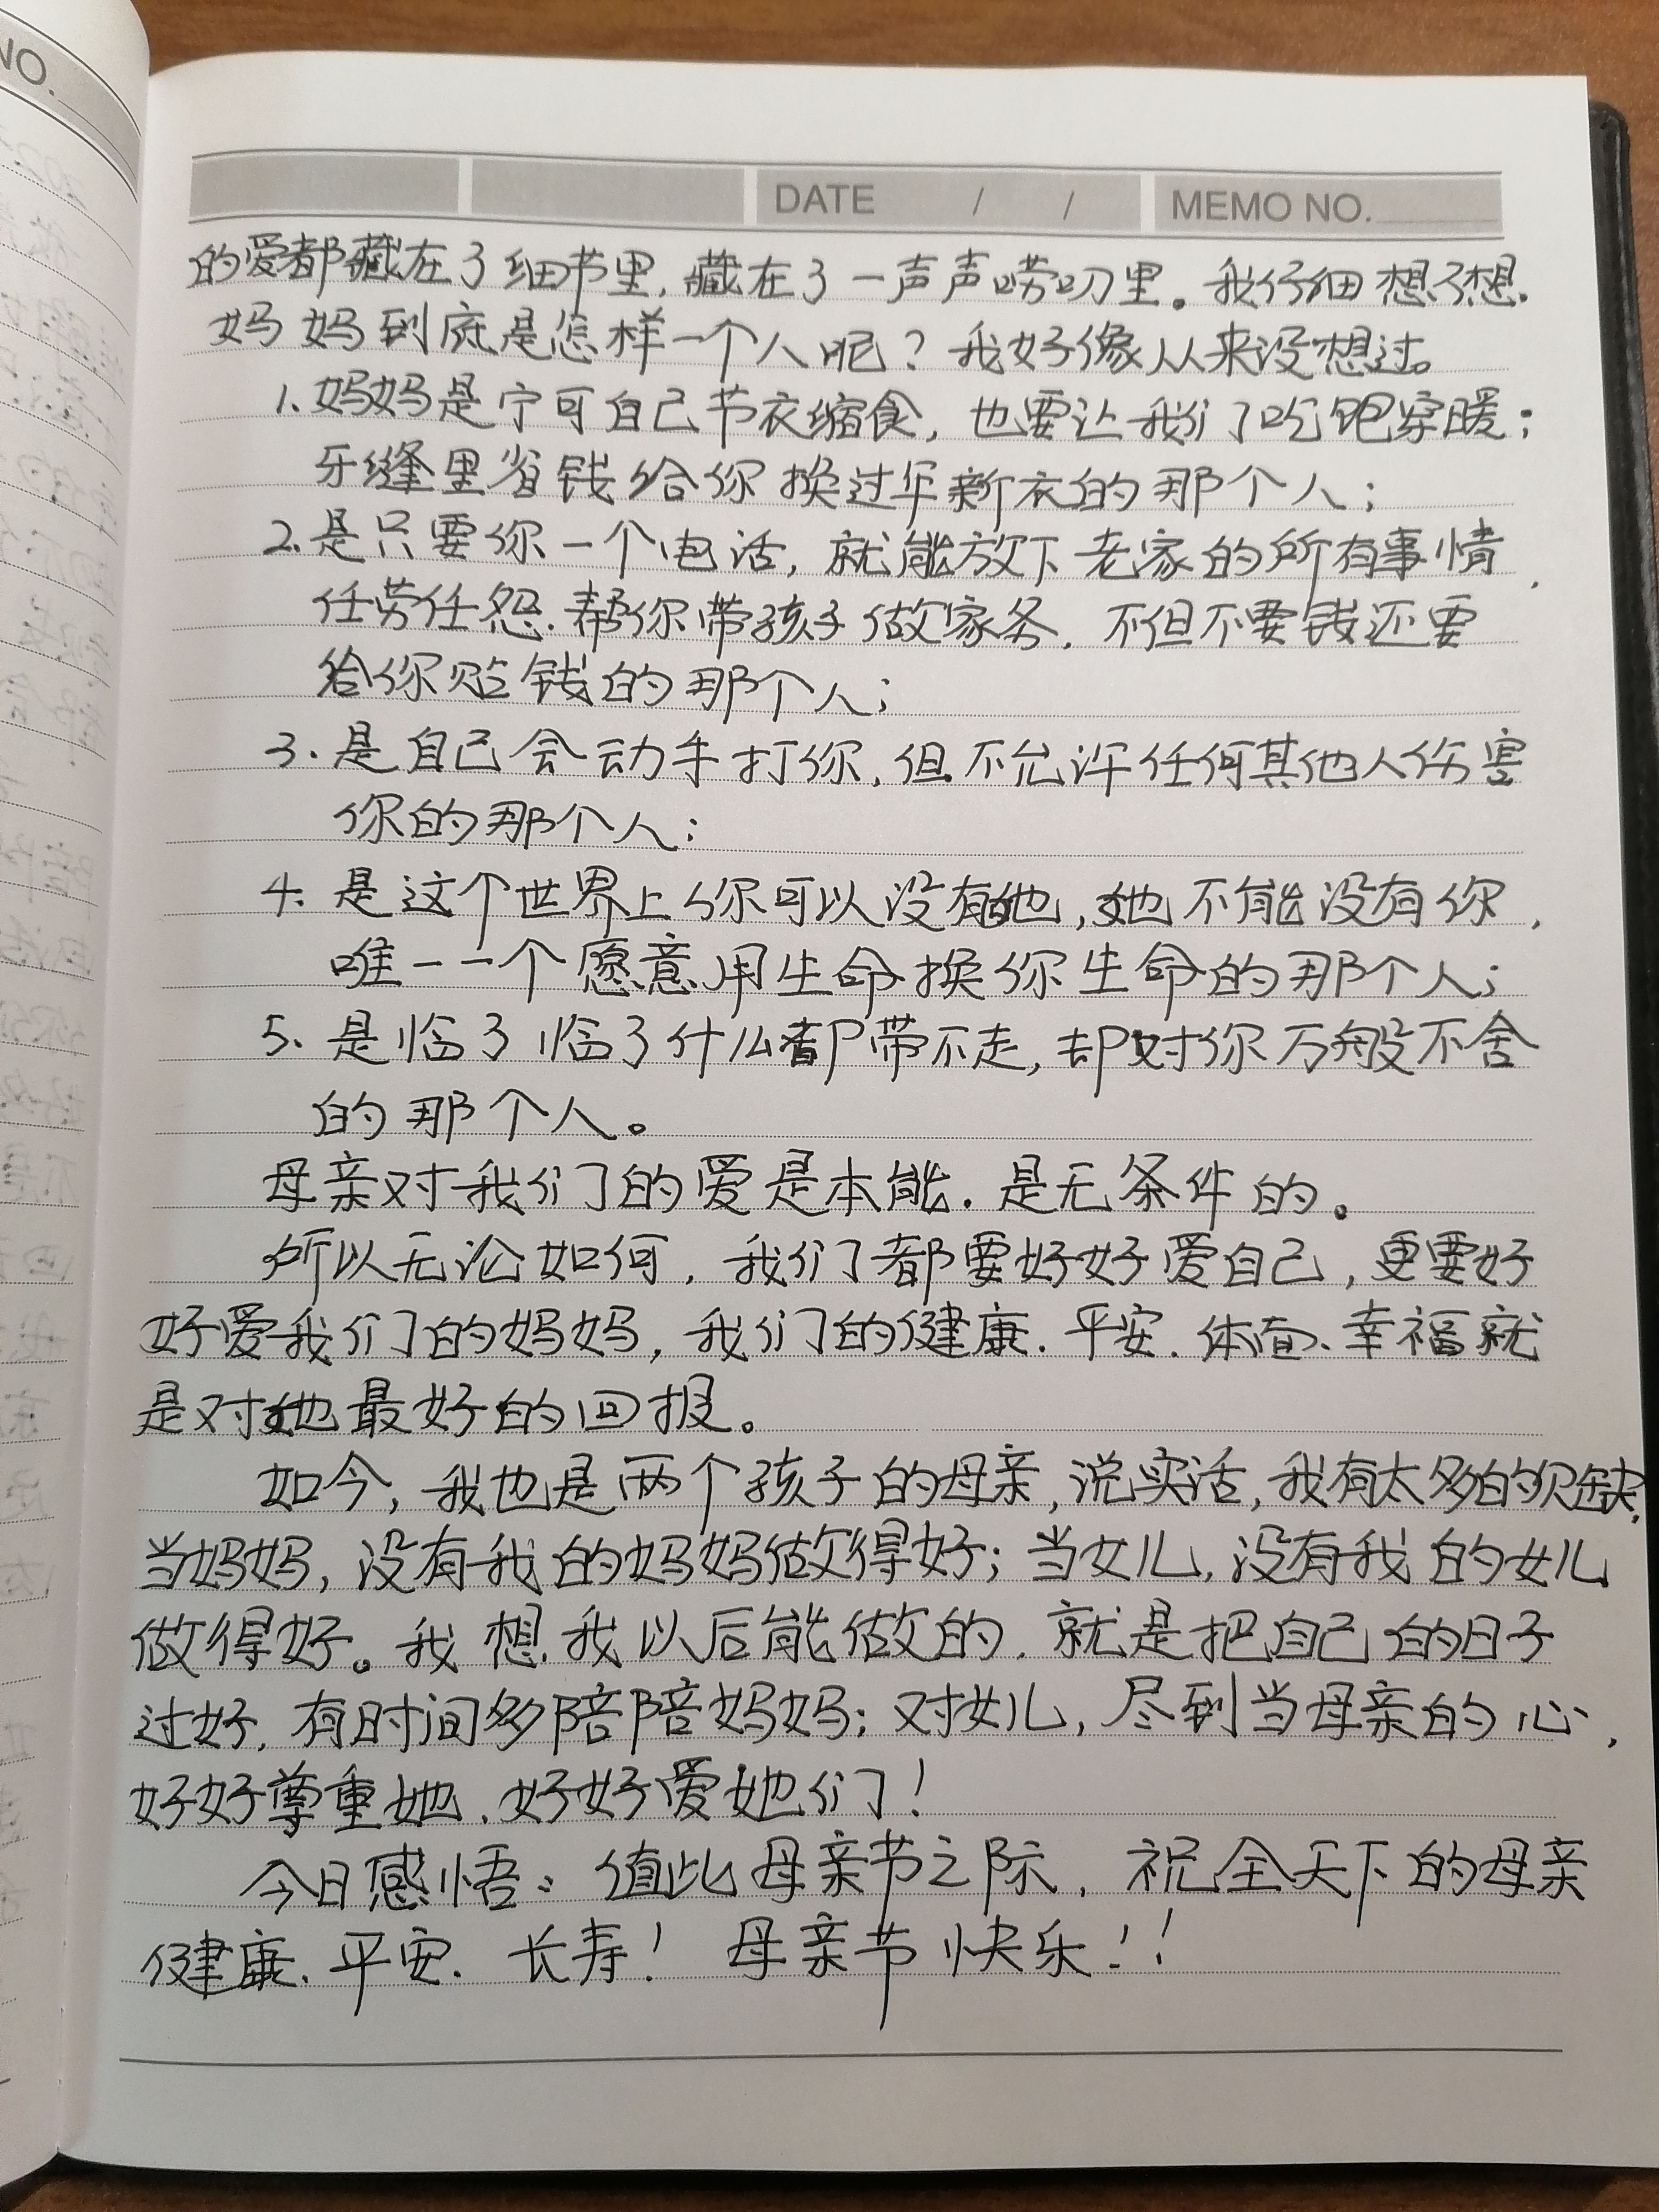 NO.
DATE / / MEMO NO.
的爱都藏在了细节里,藏在了一声声唠叨里。我仔细想了想.
妈妈到底是怎样一个人呢?我好像从来没想过。
1.妈妈是宁可自己节衣缩食,也要让我们吃饱穿暖;
牙缝里省钱给你换过年新衣的那个人;
2.是只要你一个电话,就能放下老家的所有事情,
任劳任怨.帮你带孩子做家务.不但不要钱还要
给你贴钱的那个人;
3.是自己会动手打你,但不允许任何其他人伤害
你的那个人;
4.是这个世界上你可以没有她,她不能没有你,
唯一一个愿意用生命换你生命的那个人;
5.是临了临了什么都带不走,却对你万般不舍
的那个人。
母亲对我们的爱是本能.是无条件的。
所以无论如何,我们都要好好爱自己,更要好
好爱我们的妈妈,我们的健康.平安.体面、幸福就
是对她最好的回报。
如今,我也是两个孩子的母亲,说实话,我有太多的欠缺,
当妈妈,没有我的妈妈做得好;当女儿,没有我的女儿
做得好。我想.我以后能做的.就是把自己的日子
过好,有时间多陪陪妈妈;对女儿,尽到当母亲的心,
好好尊重她.好好爱她们!
今日感悟:值此母亲节之际,祝全天下的母亲
健康.平安.长寿!母亲节快乐!!